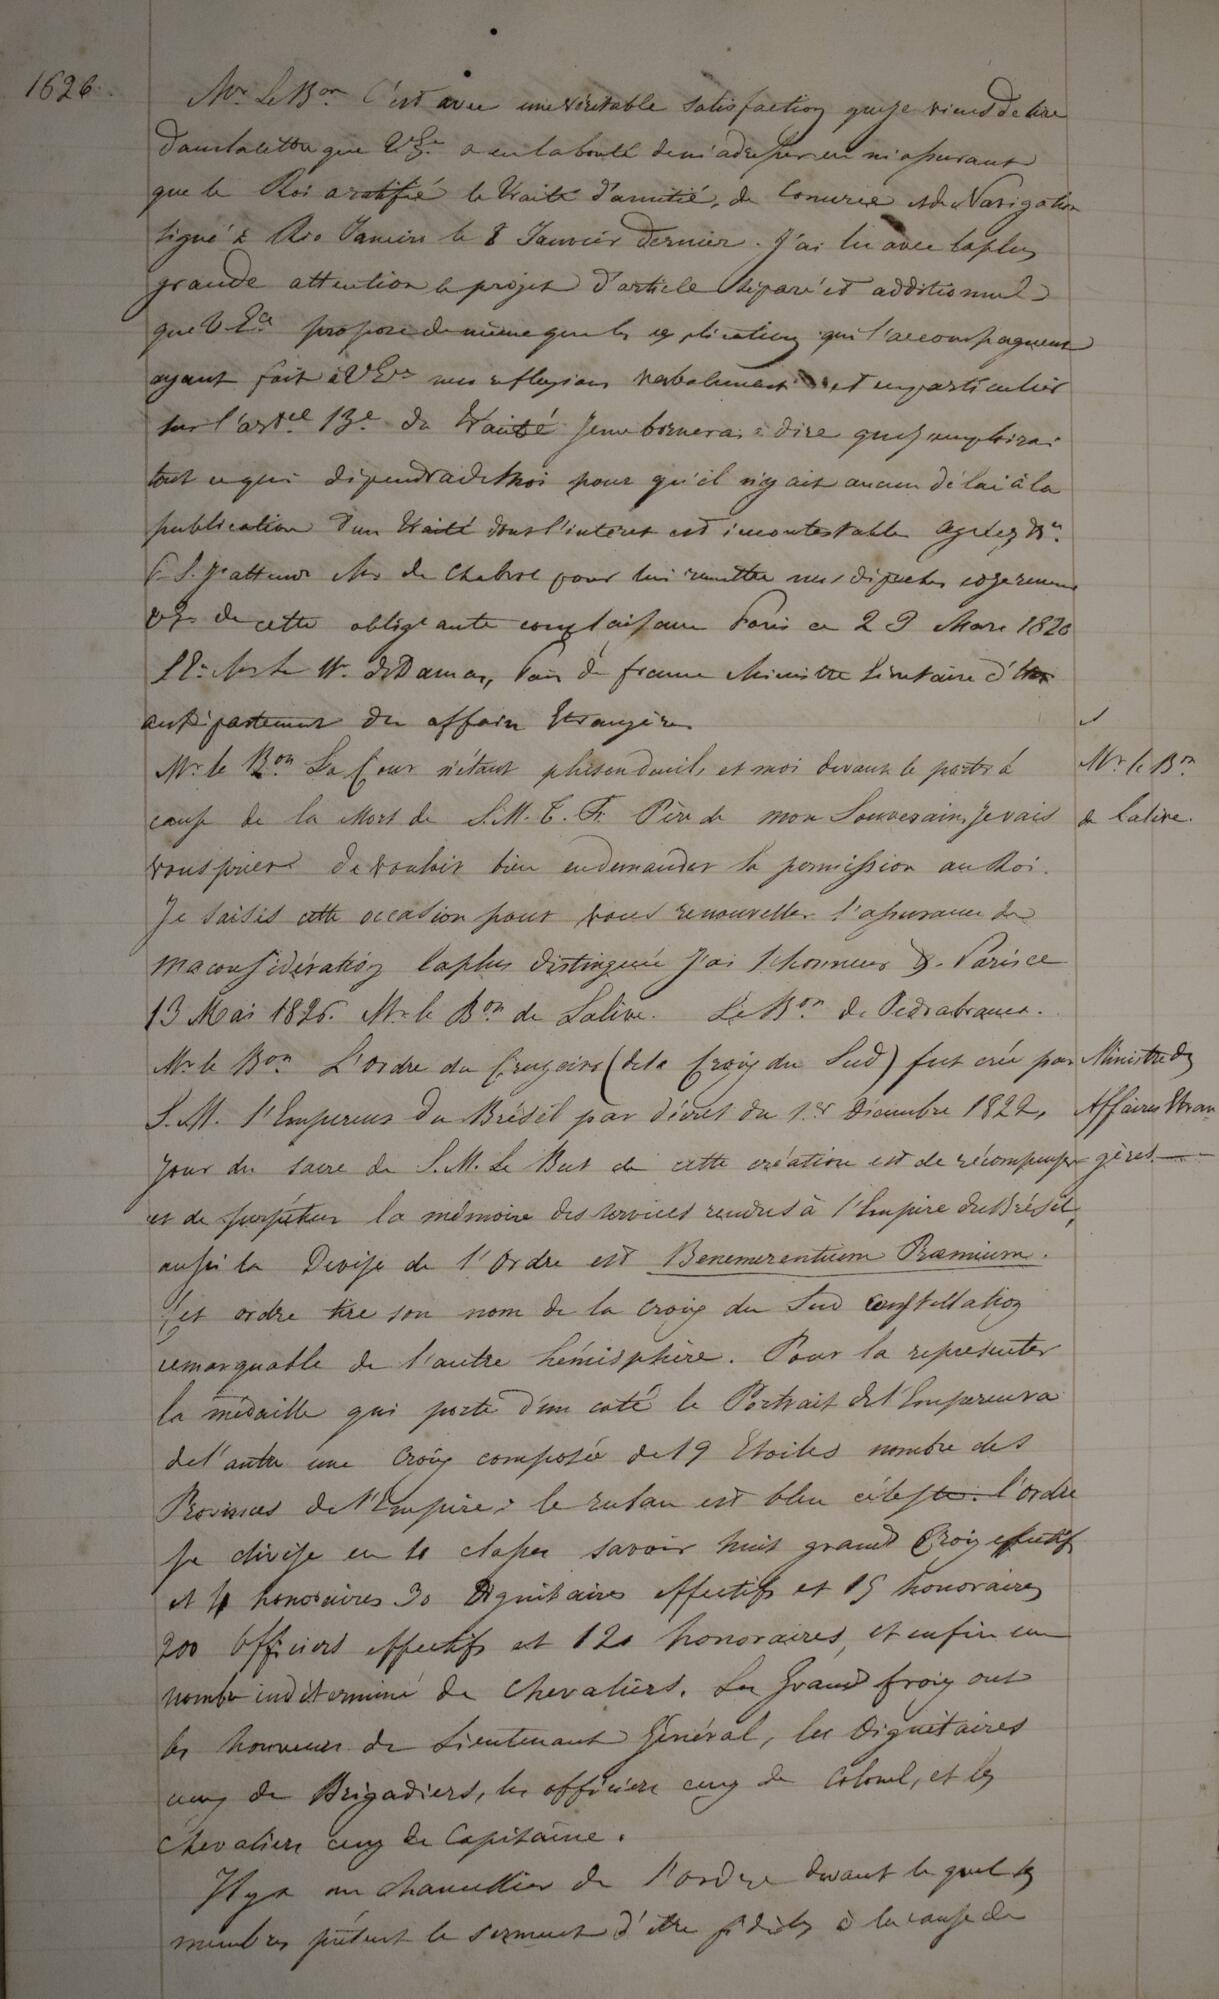 1626.
Mr. Le Bon C'est avec une véritable satisfaction que je viens de lire
dans la lettre que V. Ex. a eu la bonté de m'adresser en m'assurant
que le Roi a ratifié le Traité d'amitié, de Comerce et de Navigation
signé à Rio Janeiro le 8 Janvier dernier. J'ai lu avec la plus
grande attention le projet d'article séparé et additionnel
que V Exce propose de même que les explications qui l'accompagnent
ayant fait à V Exce mes reflexions verbalement et en particulier
sur l'artcel 13e du Traité je me bornerai à dire que j'emploirai
tout ce qui dépendra de Moi pour qu'il n'y ait aucun délai à la
publication d'un Traité dont l'intéret est incontestable agréez
P. S. J'attends Mr de Chabrol pour lui remettre mes dépeches
de cette obligeante complaisance Paris ce 29 Mars 1826
S E. Mr le de Damas, Pair de france Ministre Secretaire d'Etat
au Département des affaires Etrangères
Mr. le Bon de Lalive.
Mr le Bon La Cour n'étant plus en deuil, et moi devant le porter à
cause de la Mort de S. M. T. F. Père de mon Souverain, je vais
vous prier de vouloir bien en demander la permission au Roi.
Je saisis cette occasion pour vous renouveller l'assurance de
ma considération la plus distinguée J'ai l'honneur &. Paris ce
13 Mai 1826. Mr le Bon de Lalive. Le Bon de Pedrabranca.
Ministre des Affaires Etran-
gères.
Mr le Bon L'ordre du Cruzeiro (de la Croix du Sud) fut crée par
S. M. l'Empereur du Brésil par décret du 1er Décembre 1822,
jour du sacre de S. M. Le But de cette création est de récompenser
et de perpétuer la mémoire des services rendus à l'Empire du Brésil,
aussi la Devise de l'Ordre est Benemerentium Præmium.
Cet ordre tire son nom de la Croix du Sud constellation
remarquable de l'autre hémisphère. Pour la representer
la médaille qui porte d'un coté le Portrait de l'Empereur a
de l'autre une Croix composée de 19 Etoiles nombre des
Provinces de l'Empire; le ruban est bleu céleste. l'ordre
se divise en 4 classes savoir huit grand Croix effectifs
et 4 honoraires 30 Dignitaires effectifs et 15 honoraires
200 Officiers effectifs et 120 honoraires, et enfin un
nombre indéterminé de Chevaliers. Les Grand Croix ont
les honneurs de Lieutenant Général, les Dignitaires
ceux de Brigadiers, les officiers ceux de Colonel, et les
Chevaliers ceux de Capitaine.
Il y a un chancellier de l'ordre devant le quel les
membres prêtent le serment d'être fidèles à la cause de